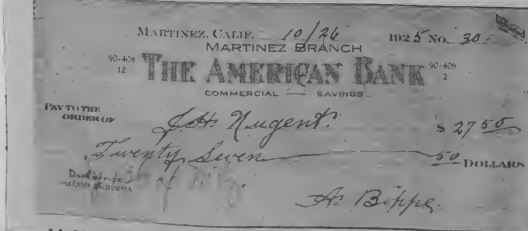 MARTINEZ, CALIF. 10/26 1925 No. 30
MARTINEZ BRANCH
90-408 12 THE AMERICAN BANK 90-408 2
COMMERCIAL SAVINGS
PAY TO THE ORDER OF J.H. Nugent. $ 27 50
Twenty Seven 50 DOLLARS
OAKLAND, CALIFORNIA
A. Bippe.